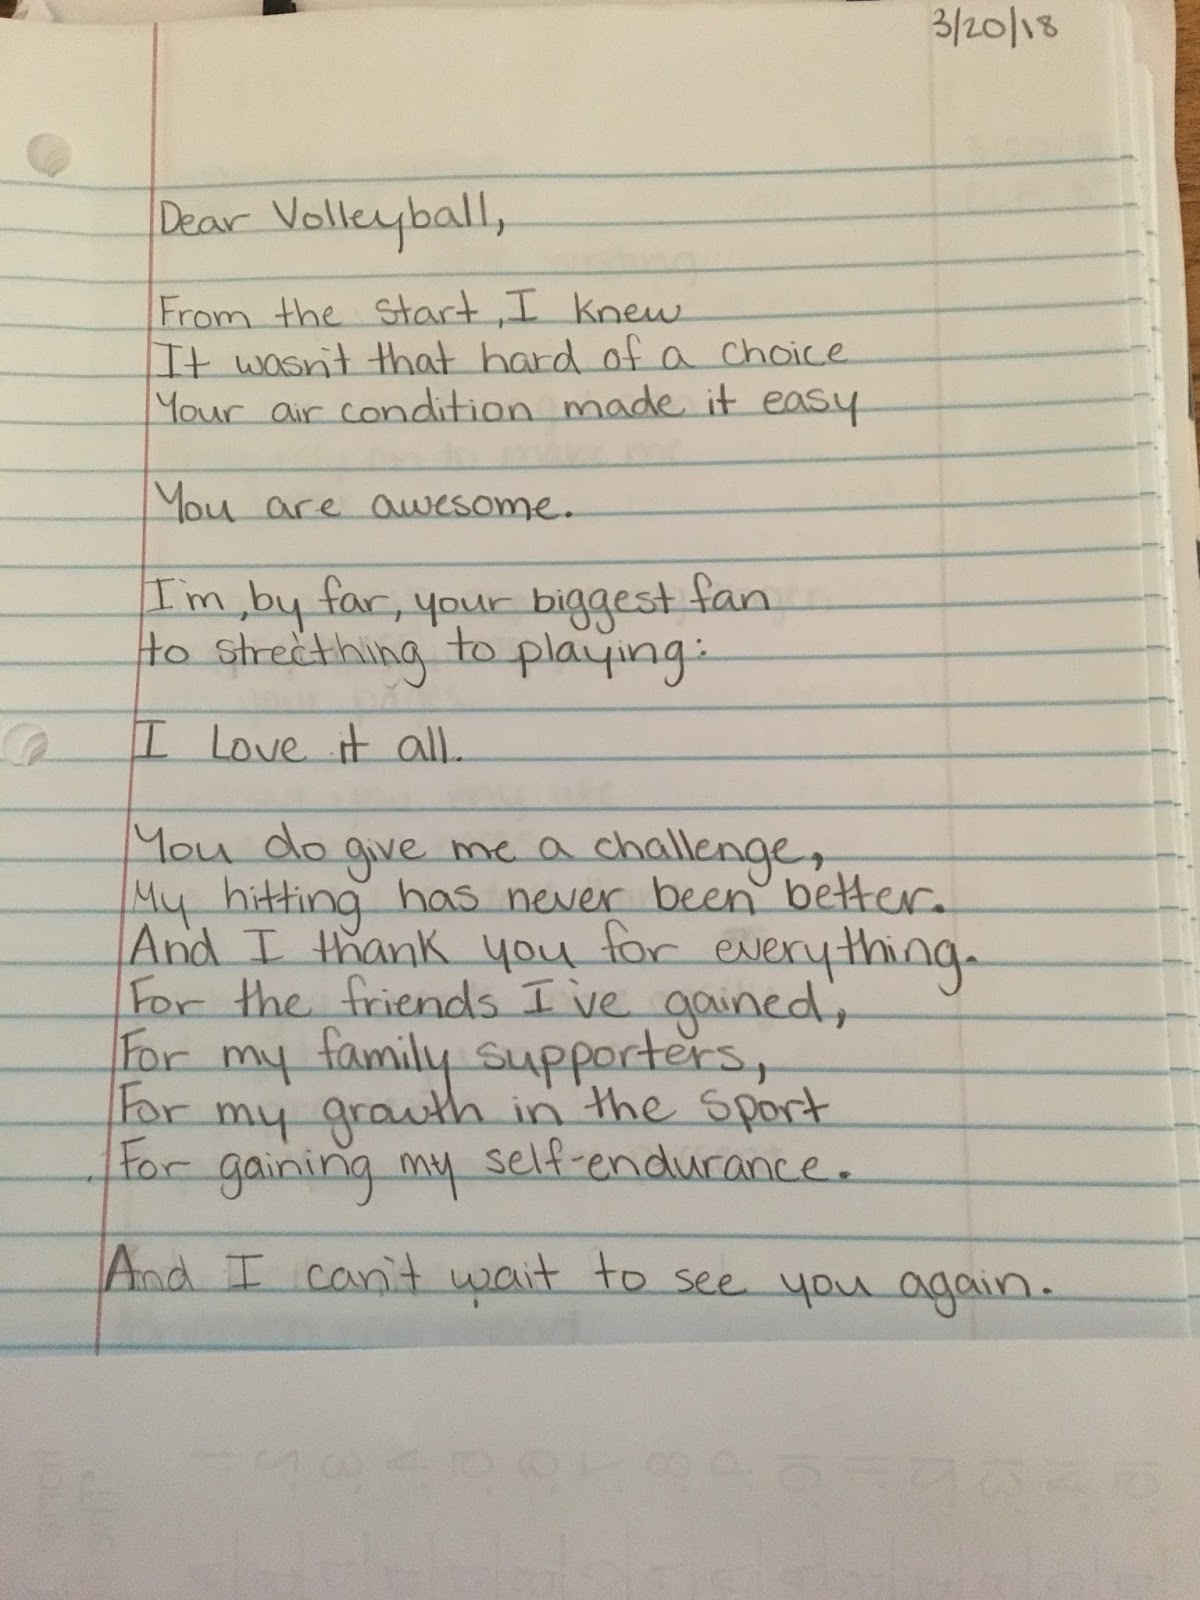 3/20/18
Dear Volleyball,
From the start, I knew
It wasn't that hard of a choice
Your air condition made it easy
You are awesome.
I'm, by far, your biggest fan
to strecthing to playing:
I Love it all.
You do give me a challenge,
My hitting has never been better.
And I thank you for everything.
For the friends I've gained,
For my family supporters,
For my growth in the sport
For gaining my self-endurance.
And I can't wait to see you again.